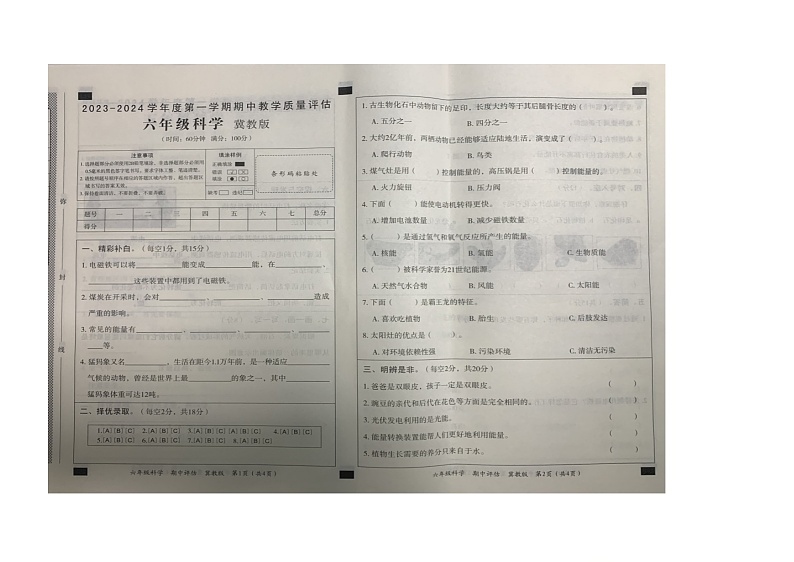 2023-2024学年度第一学期期中教学质量评估
六年级科学 冀教版
(时间:60分钟 满分:100分)
注意事项
填涂样例
正确填涂
条形码粘贴处
题号 一 二 三 四 五 六 七 总分
得分
一、精彩补白。(每空1分,共15分)
1. 电磁铁可以将________能转化为________能,在________、
________这些装置中都用到了电磁铁。
2. 煤炭在开采时,会对________、________、________造成
严重的影响。
3. 常见的能量有________、________、________、________
____等。
4. 猛犸象又名________,生活在距今1.1万年前,是一种适应________
气候的动物,曾经是世界上最________的象之一,其中________
猛犸象体重可达12吨。
二、择优录取。(每空2分,共18分)
1.[A][B][C] 2.[A][B][C] 3.[A][B][C][A][B][C] 4.[A][B][C]
5.[A][B][C] 6.[A][B][C] 7.[A][B][C] 8.[A][B][C]
六年级科学 期中评估 冀教版 第1页(共4页)
弥
封
线
1. 古生物化石中动物留下的足印,长度大约等于其后腿骨长度的( )。
A. 五分之一 B. 四分之一
2. 大约2亿年前,两栖动物已经能够适应陆地生活,演变成了( )。
A. 爬行动物 B. 鸟类
3. 煤气灶是用( )控制能量的,高压锅是用( )控制能量的。
A. 火力旋钮 B. 压力阀
4. 下面( )能使电动机转得更快。
A. 增加电池数量 B. 减少磁铁数量
5. ( )是通过氢气和氧气反应所产生的能量。
A. 核能 B. 氢能 C. 生物质能
6. ( )被科学家誉为21世纪能源。
A. 天然气水合物 B. 风能 C. 太阳能
7. 下面( )是霸王龙的特征。
A. 喜欢吃植物 B. 胎生 C. 后肢发达
8. 太阳灶的优点是( )。
A. 对环境依赖性强 B. 污染环境 C. 清洁无污染
三、明辨是非。(每空2分,共20分)
1. 爸爸是双眼皮,孩子一定是双眼皮。 ( )
2. 豌豆的亲代和后代在花色等方面是完全相同的。 ( )
3. 光伏发电利用的是光能。 ( )
4. 能量转换装置能帮人们更好地利用能量。 ( )
5. 植物生长需要的养分只来自于水。 ( )
六年级科学 期中评估 冀教版 第2页(共4页)